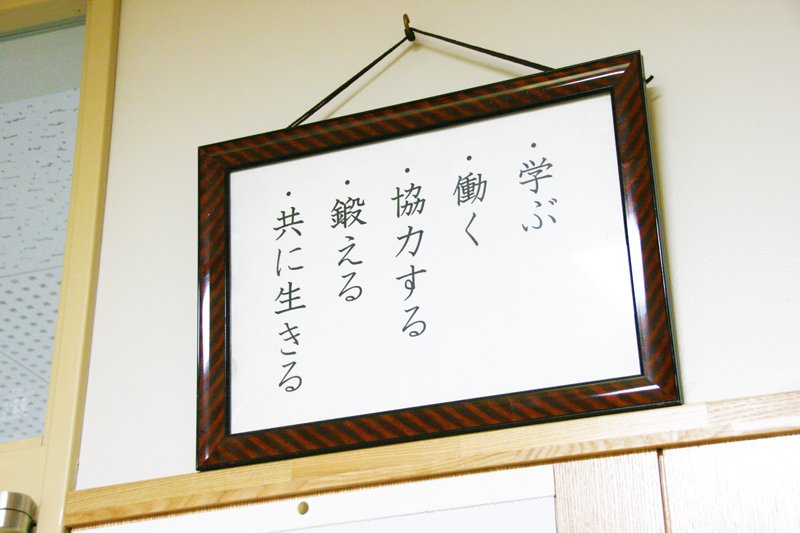 ・学ぶ
・働く
・協力する
・鍛える
・共に生きる